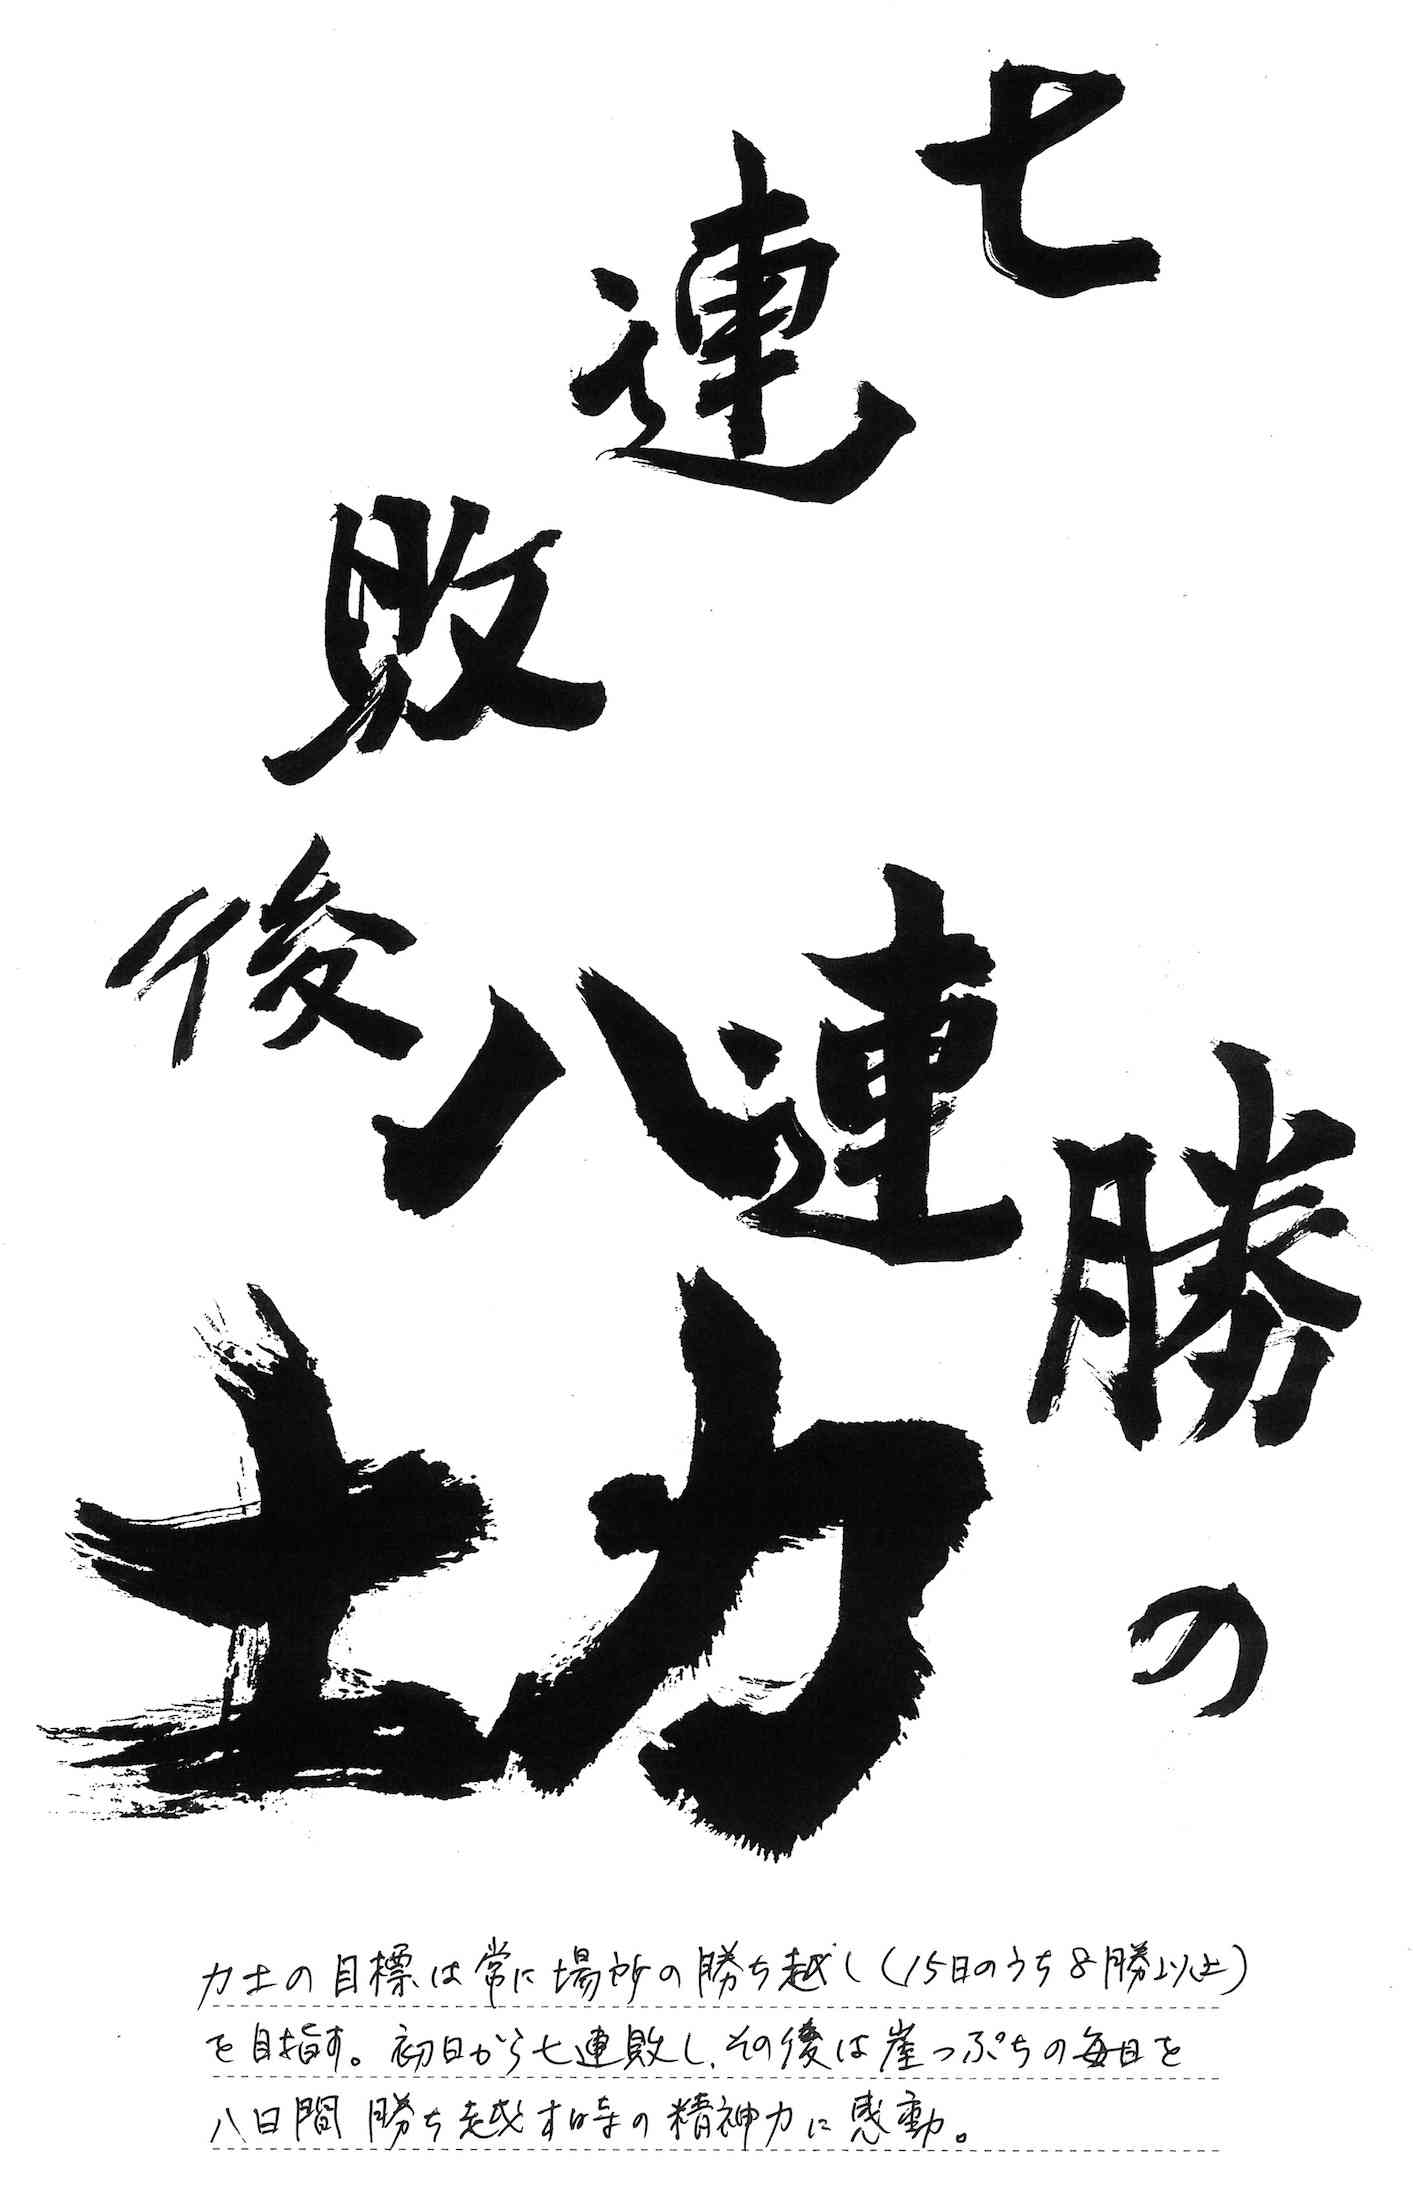 七連敗後八連勝の力士
力士の目標は常に場所の勝ち越し(15日のうち8勝以上)
を目指す。初日から七連敗し、その後は崖っぷちの毎日を
八日間勝ち越す時の精神力に感動。